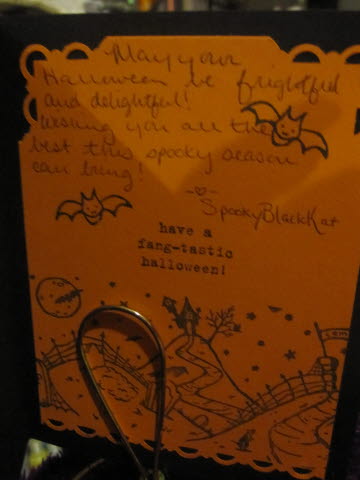 May your
Halloween be frightful
and delightful!
Wishing you all the
best this spooky season
can bring!
SpookyBlackKat
have a
fang-tastic
halloween!